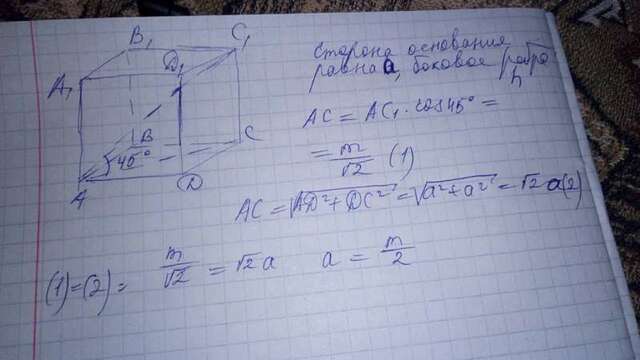 B₁
C₁
A₁
D₁
B
C
45°
A
D
сторона основания
равна a, боковое ребро
h
AC = AC₁ · cos45° =
= m/√2 (1)
AC = √AD²+DC² = √a²+a² = √2 a (2)
(1)=(2) = m/√2 = √2 a a = m/2